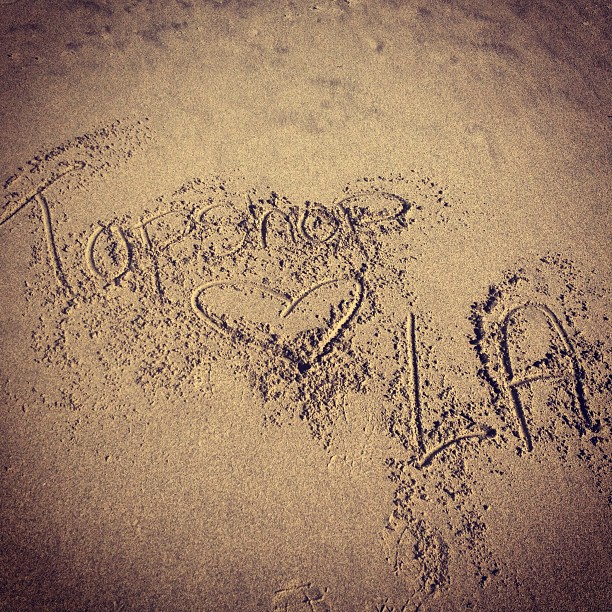 Topshop
♡ LA